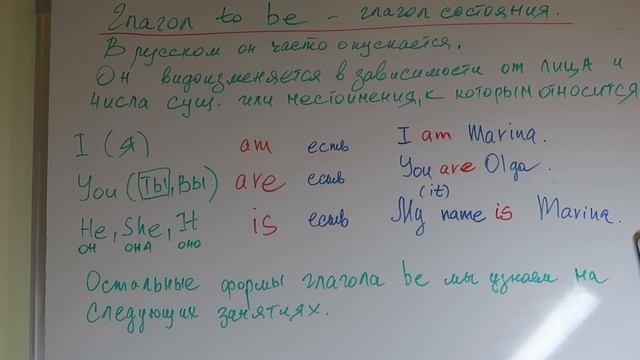 Глагол to be - глагол состояния.
В русском он часто опускается.
Он видоизменяется в зависимости от лица и
числа сущ. или местоимения, к которым относится
I (я) am есть I am Marina.
You (ты, вы) are есть You are Olga.
(it)
He, She, It is есть My name is Marina.
он она оно
Остальные формы глагола be мы узнаем на
следующих занятиях.